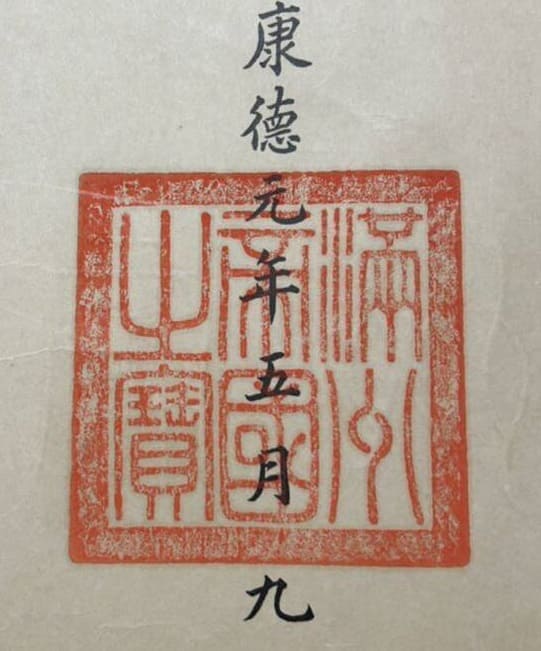 康德元年五月九
滿州
帝國
之寶